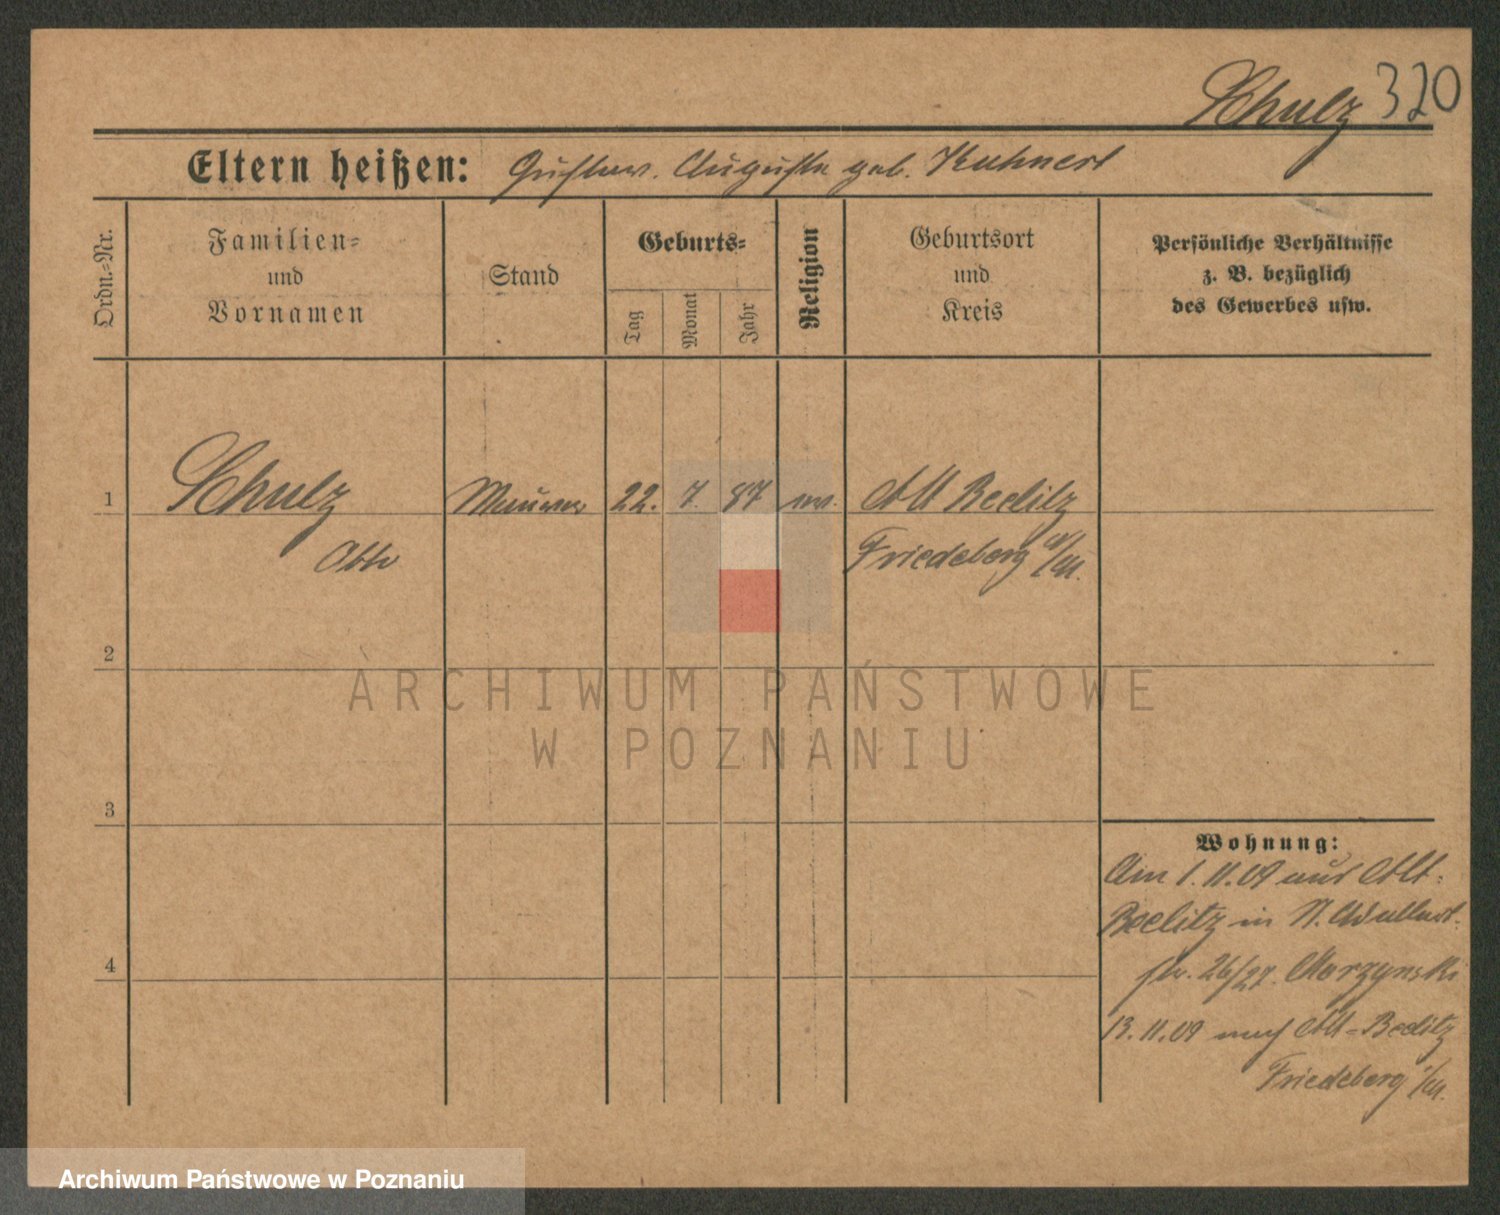 Schulz 320
Eltern heißen: Gustav. Auguste geb. Kuhnert
Ordn.-Nr.
Familien-
und
Vornamen
Stand
Geburts-
Tag
Monat
Jahr
Religion
Geburtsort
und
Kreis
Persönliche Verhältnisse
z. B. bezüglich
des Gewerbes usw.
1 Schulz Maurer 22. 7. 87 ev. Alt Beelitz
Otto Friedeberg
2
ARCHIWUM PAŃSTWOWE
W POZNANIU
3
Wohnung:
Am 1.11.09 aus Alt-
Beelitz in
str. 26/27.
4
13.11.09 nach Alt-Beelitz
Friedeberg
Archiwum Państwowe w Poznaniu